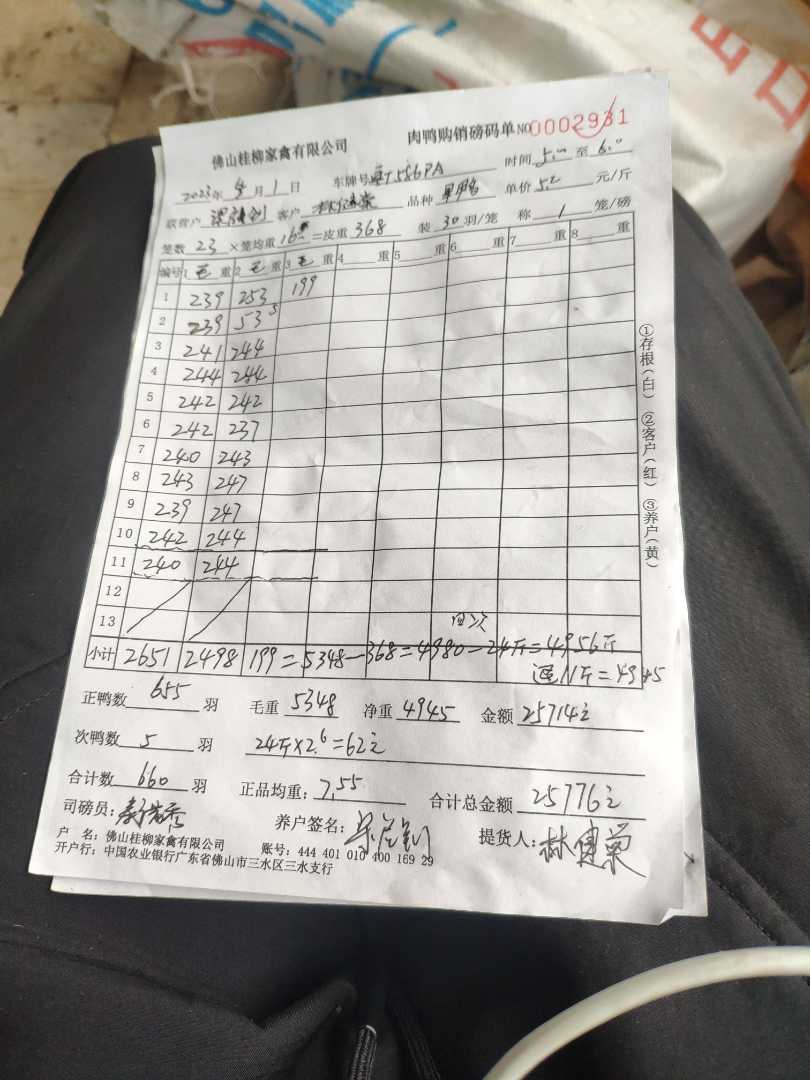 佛山桂柳家禽有限公司 肉鸭购销磅码单 NO 0002931
2023年 月1日 车牌号 时间 5.00 至 6.0
联营户 客户 品种 单价 5.2 元/斤
笼数 23 ×笼均重 16 =皮重 368 装 30 羽/笼 称 1 笼/磅
编号 1 毛 重 2 毛 重 3 毛 重 4 重 5 重 6 重 7 重 8 重
1 239 253 199
2 239 53
3 241 244
4 244 244
5 242 242
6 242 237
7 240 243
8 243 247
9 239 247
10 242 244
11 240 244
12
13
小计 2651 2498 199 = 5348 - 368 = 4980 - 24斤 = 4956斤
11斤 = 4945
正鸭数 655 羽 毛重 5348 净重 4945 金额 25714元
次鸭数 5 羽 24斤×2.6=62元
合计数 660 羽 正品均重: 7.55 合计总金额 25776元
司磅员: 养户签名: 提货人: 林
户 名: 佛山桂柳家禽有限公司 账号: 444 401 010 400 169 29
开户行: 中国农业银行广东省佛山市三水区三水支行
①存根(白) ②客户(红) ③养户(黄)